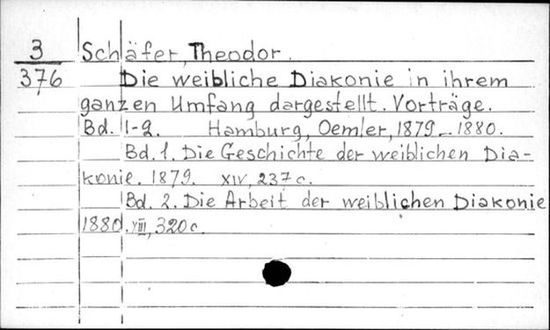 3 Schäfer, Theodor.
376 Die weibliche Diakonie in ihrem
ganzen Umfang dargestellt. Vorträge.
Bd. 1-2. Hamburg, Oemler, 1879-1880.
Bd. 1. Die Geschichte der weiblichen Dia-
konie. 1879. XIV, 237 c.
Bd. 2. Die Arbeit der weiblichen Diakonie
1880. VIII, 320 c.